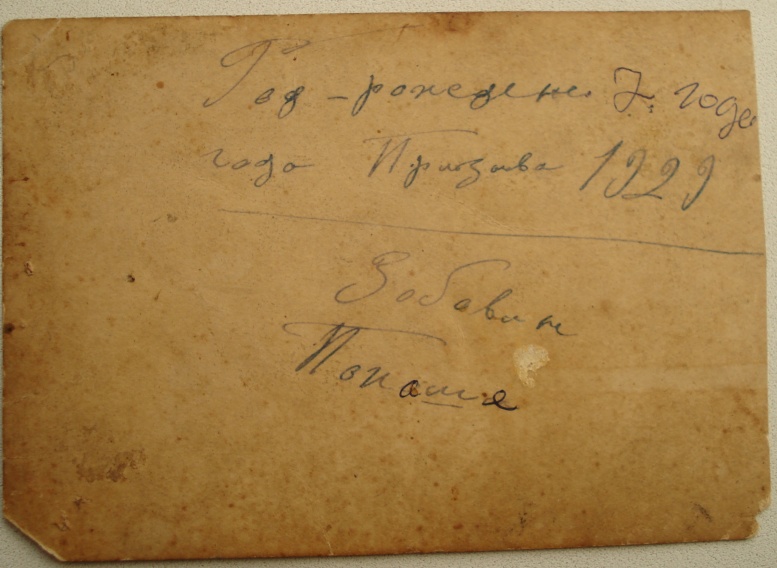 Год - рождение 7. года
года Призыва 1929
Забавин
Папаша